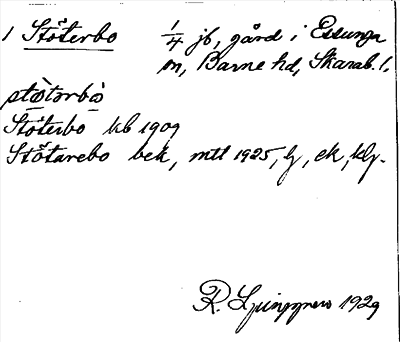 1 Stöterbo 1/4 jb, gård i Essunga
sn, Barne hd, Skarab. l.
stö̀tərbò
Stöterbo kb 1909
Stötarebo bek, mtl 1925, lj, ek, klj.
R. Ljunggren 1929